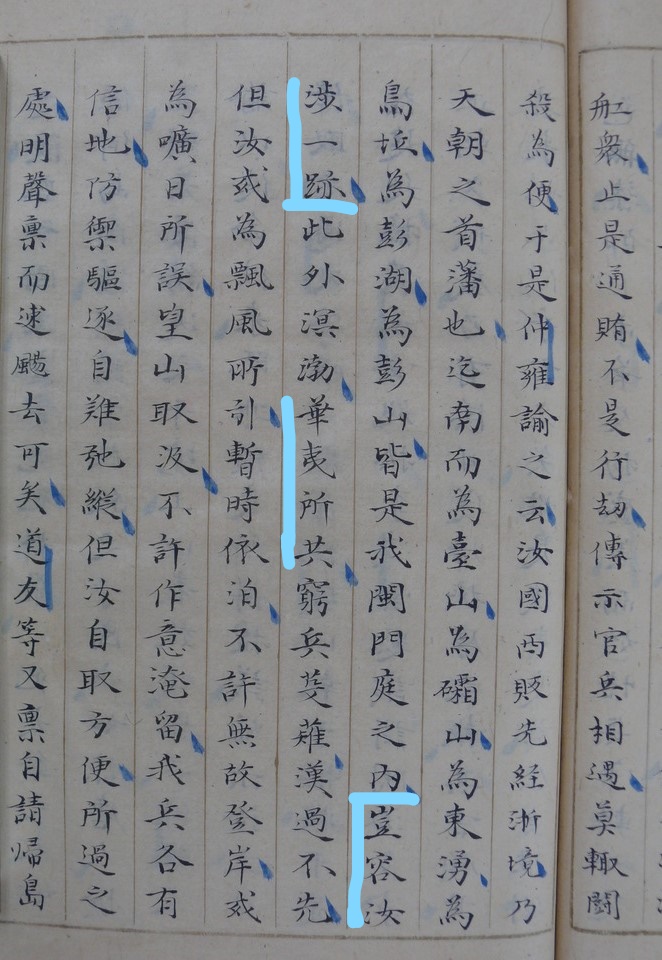 舡衆止是通賄不是行劫傳示官兵相遇莫輙鬪
殺為便于是仲雍諭之云汝國西販先經浙境乃
天朝之首藩也迄南而為臺山為礵山為東湧為
烏坵為彭湖為彭山皆是我閩門庭之內豈容汝
涉一跡此外溟渤華夷所共窮兵芟薙漢過不先
但汝或為飄風所引暫時依泊不許無故登岸或
為曠日所誤望山取汲不許作意淹留我兵各有
信地防禦驅逐自難弛縱但汝自取方便所過之
處明聲稟而速颺去可矣道友等又稟自請帰島